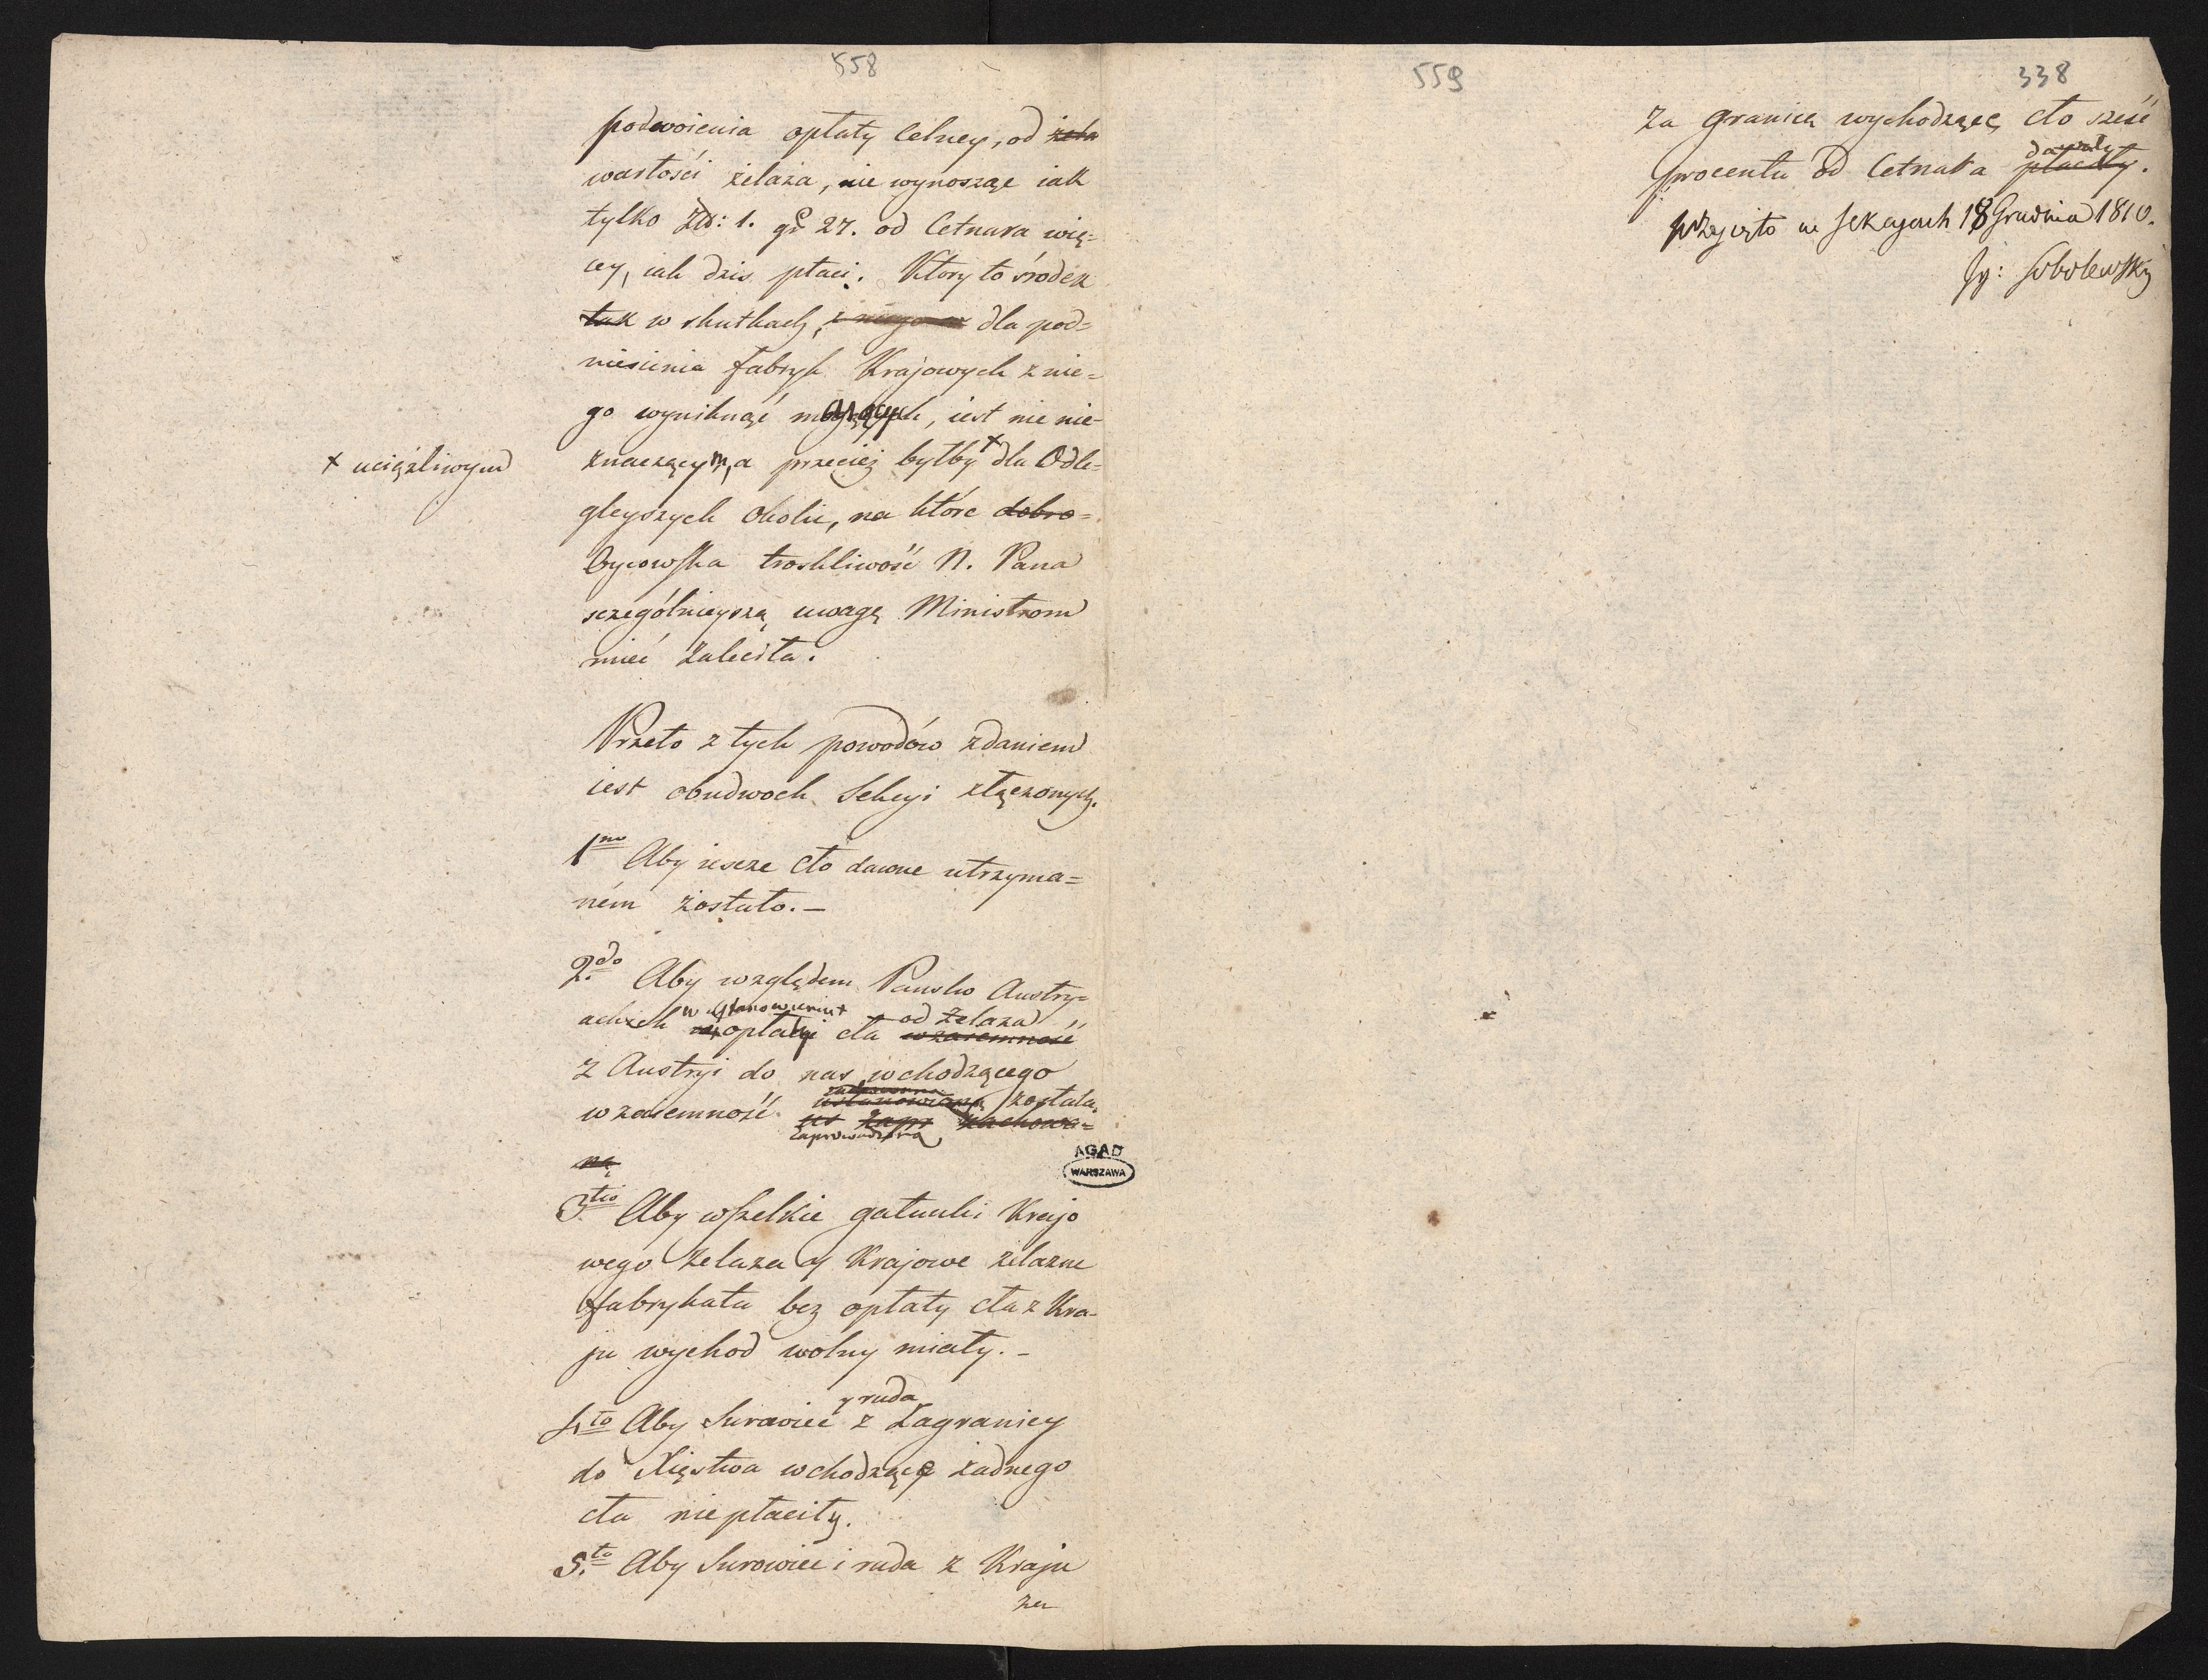 558
podwoienia opłaty Celney, od żela
wartości żelaza, nie wynosząc iak
tylko Złt: 1. gr 27. od Cetnara wię=
cey, iak dzis płaci. Ktory to środek
tak w skutkach, z niego dla pod=
niesienia fabryk Krajowych z nie=
go wyniknąć mogących, iest nie nie-
znaczącym, a przecież byłby + dla Odle=
+ uciążliwym
gleyszych okolic, na które dobro=
Oycowska troskliwość N. Pana
sczególnieyszą uwagę Ministrom
mieć zaleciła.
Przeto z tych powodów zdaniem
iest obudwoch Sekcyi złączonych.
1mo Aby iescze Cło dawne utrzyma=
ném zostało.—
2do Aby względem Pansko Austry=
w stanowieniu od żelaza
ackich opłaty cła wzaiemność
z Austryi do nas wchodzącego
wzaiemność ustanowioną została,
ust zapr zachowa=
zaprowadzoną
ną
AGAD
WARSZAWA
3tio Aby wszelkie gatunki Krajo
wego Żelaza y Krajowe żelazne
fabrykata bez opłaty cła z Kra-
ju wychod wolny miały.-
y ruda
4to Aby Surowiec z Zagranicy
do Xięstwa wchodzące żadnego
cła niepłaciły.
5to Aby Surowiec i ruda z Kraju
za
559
338
Za granicę wychodzące cło sześć
dawały
procentu od Cetnara płaciły.
przyjęto w Sekcyach 18 Grudnia 1810.
Ig: Sobolewski